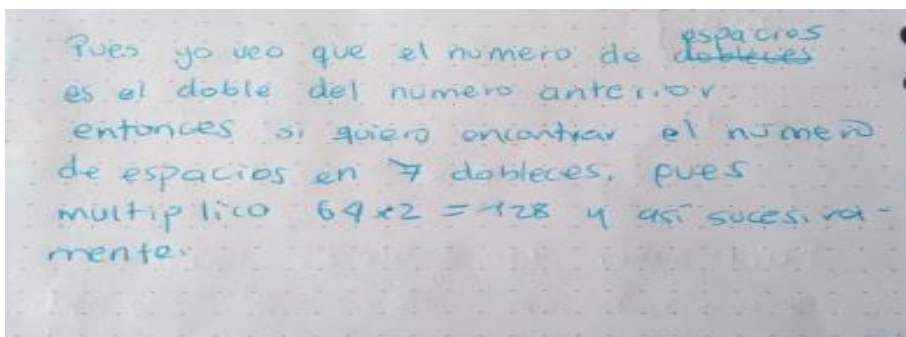 espacios
Pues yo veo que el numero de dobleces
es el doble del numero anterior.
entonces si quiero encontrar el número
de espacios en 7 dobleces, pues
multiplico 64x2 = 128 y así sucesiva-
mente.